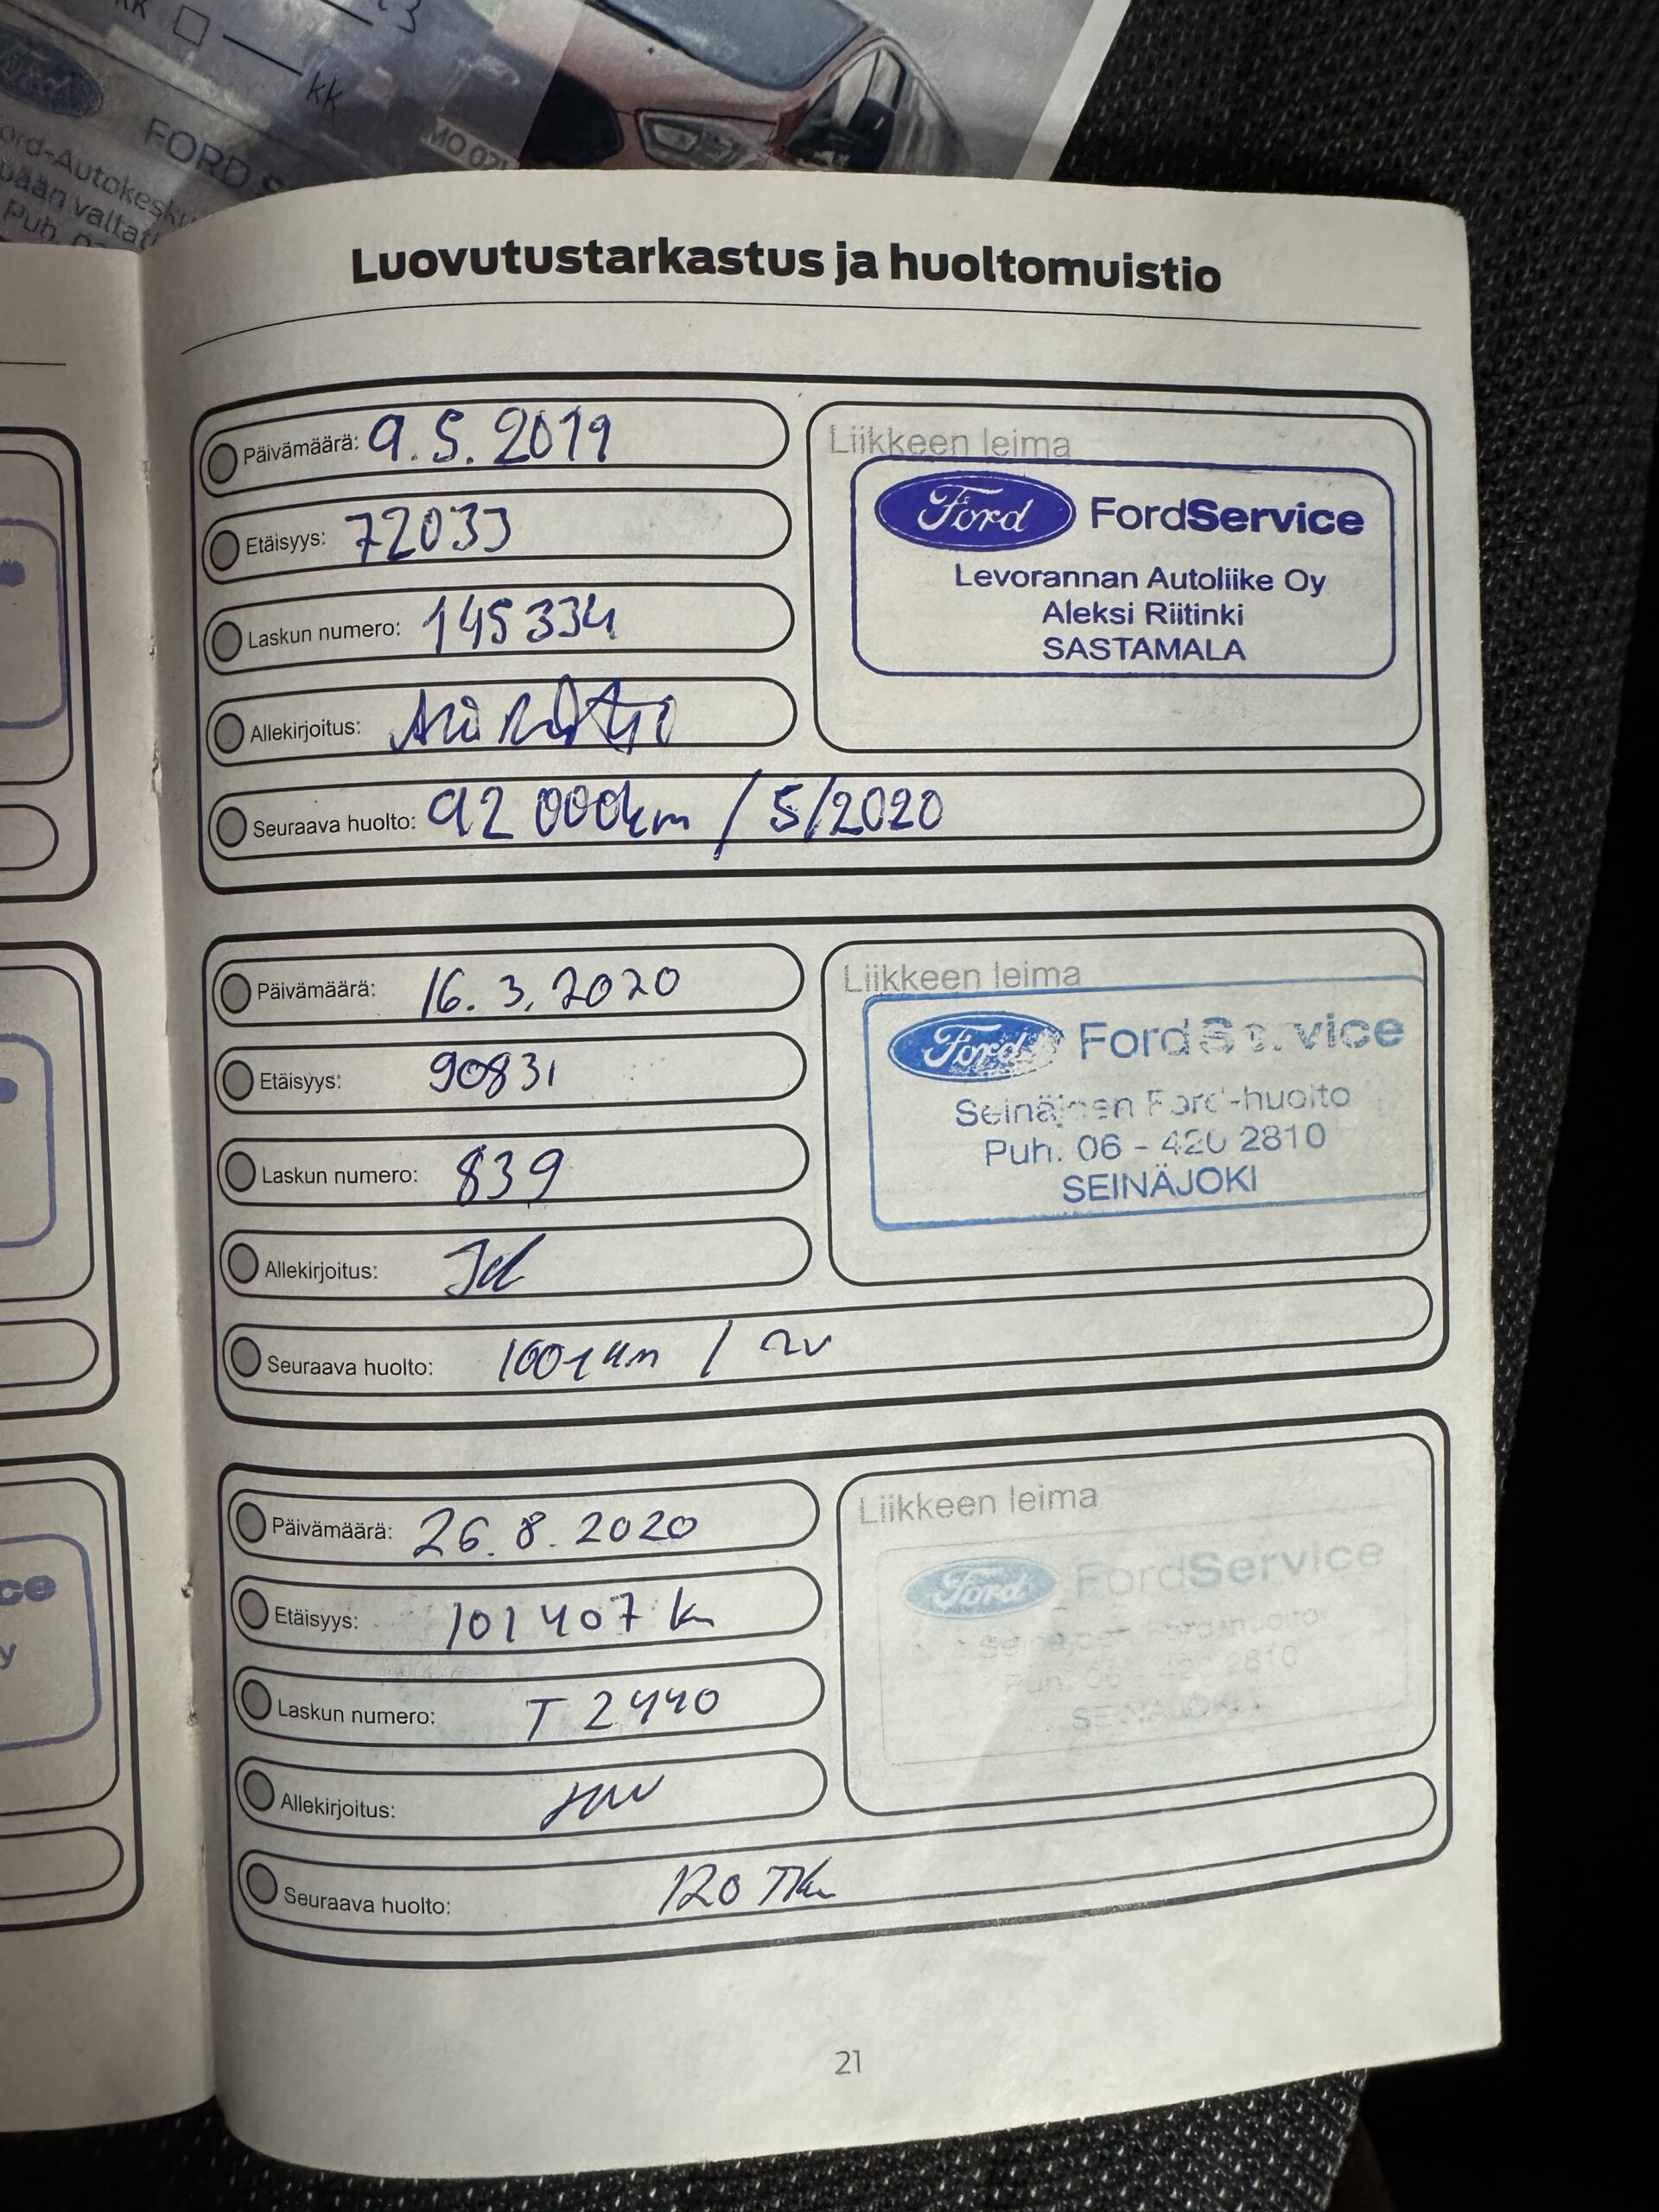 kk
kk
Ford
FORD
MO
Puh.
Luovutustarkastus ja huoltomuistio
Päivämäärä: 9.5.2019
Etäisyys: 72033
Laskun numero: 145334
Allekirjoitus:
Seuraava huolto: 92 000km / 5/2020
Liikkeen leima
Ford FordService
Levorannan Autoliike Oy
Aleksi Riitinki
SASTAMALA
Päivämäärä: 16.3.2020
Etäisyys: 90831
Laskun numero: 839
Allekirjoitus:
Seuraava huolto: / 2v
Liikkeen leima
Ford FordService
Seinäjoen Ford-huolto
Puh. 06 - 420 2810
SEINÄJOKI
Päivämäärä: 26.8.2020
Etäisyys: 101407 km
Laskun numero: T 2440
Allekirjoitus:
Seuraava huolto: 120 Tkm
Liikkeen leima
Ford FordService
Seinäjoen Ford-huolto
Puh. 06 - 420 2810
SEINÄJOKI
21